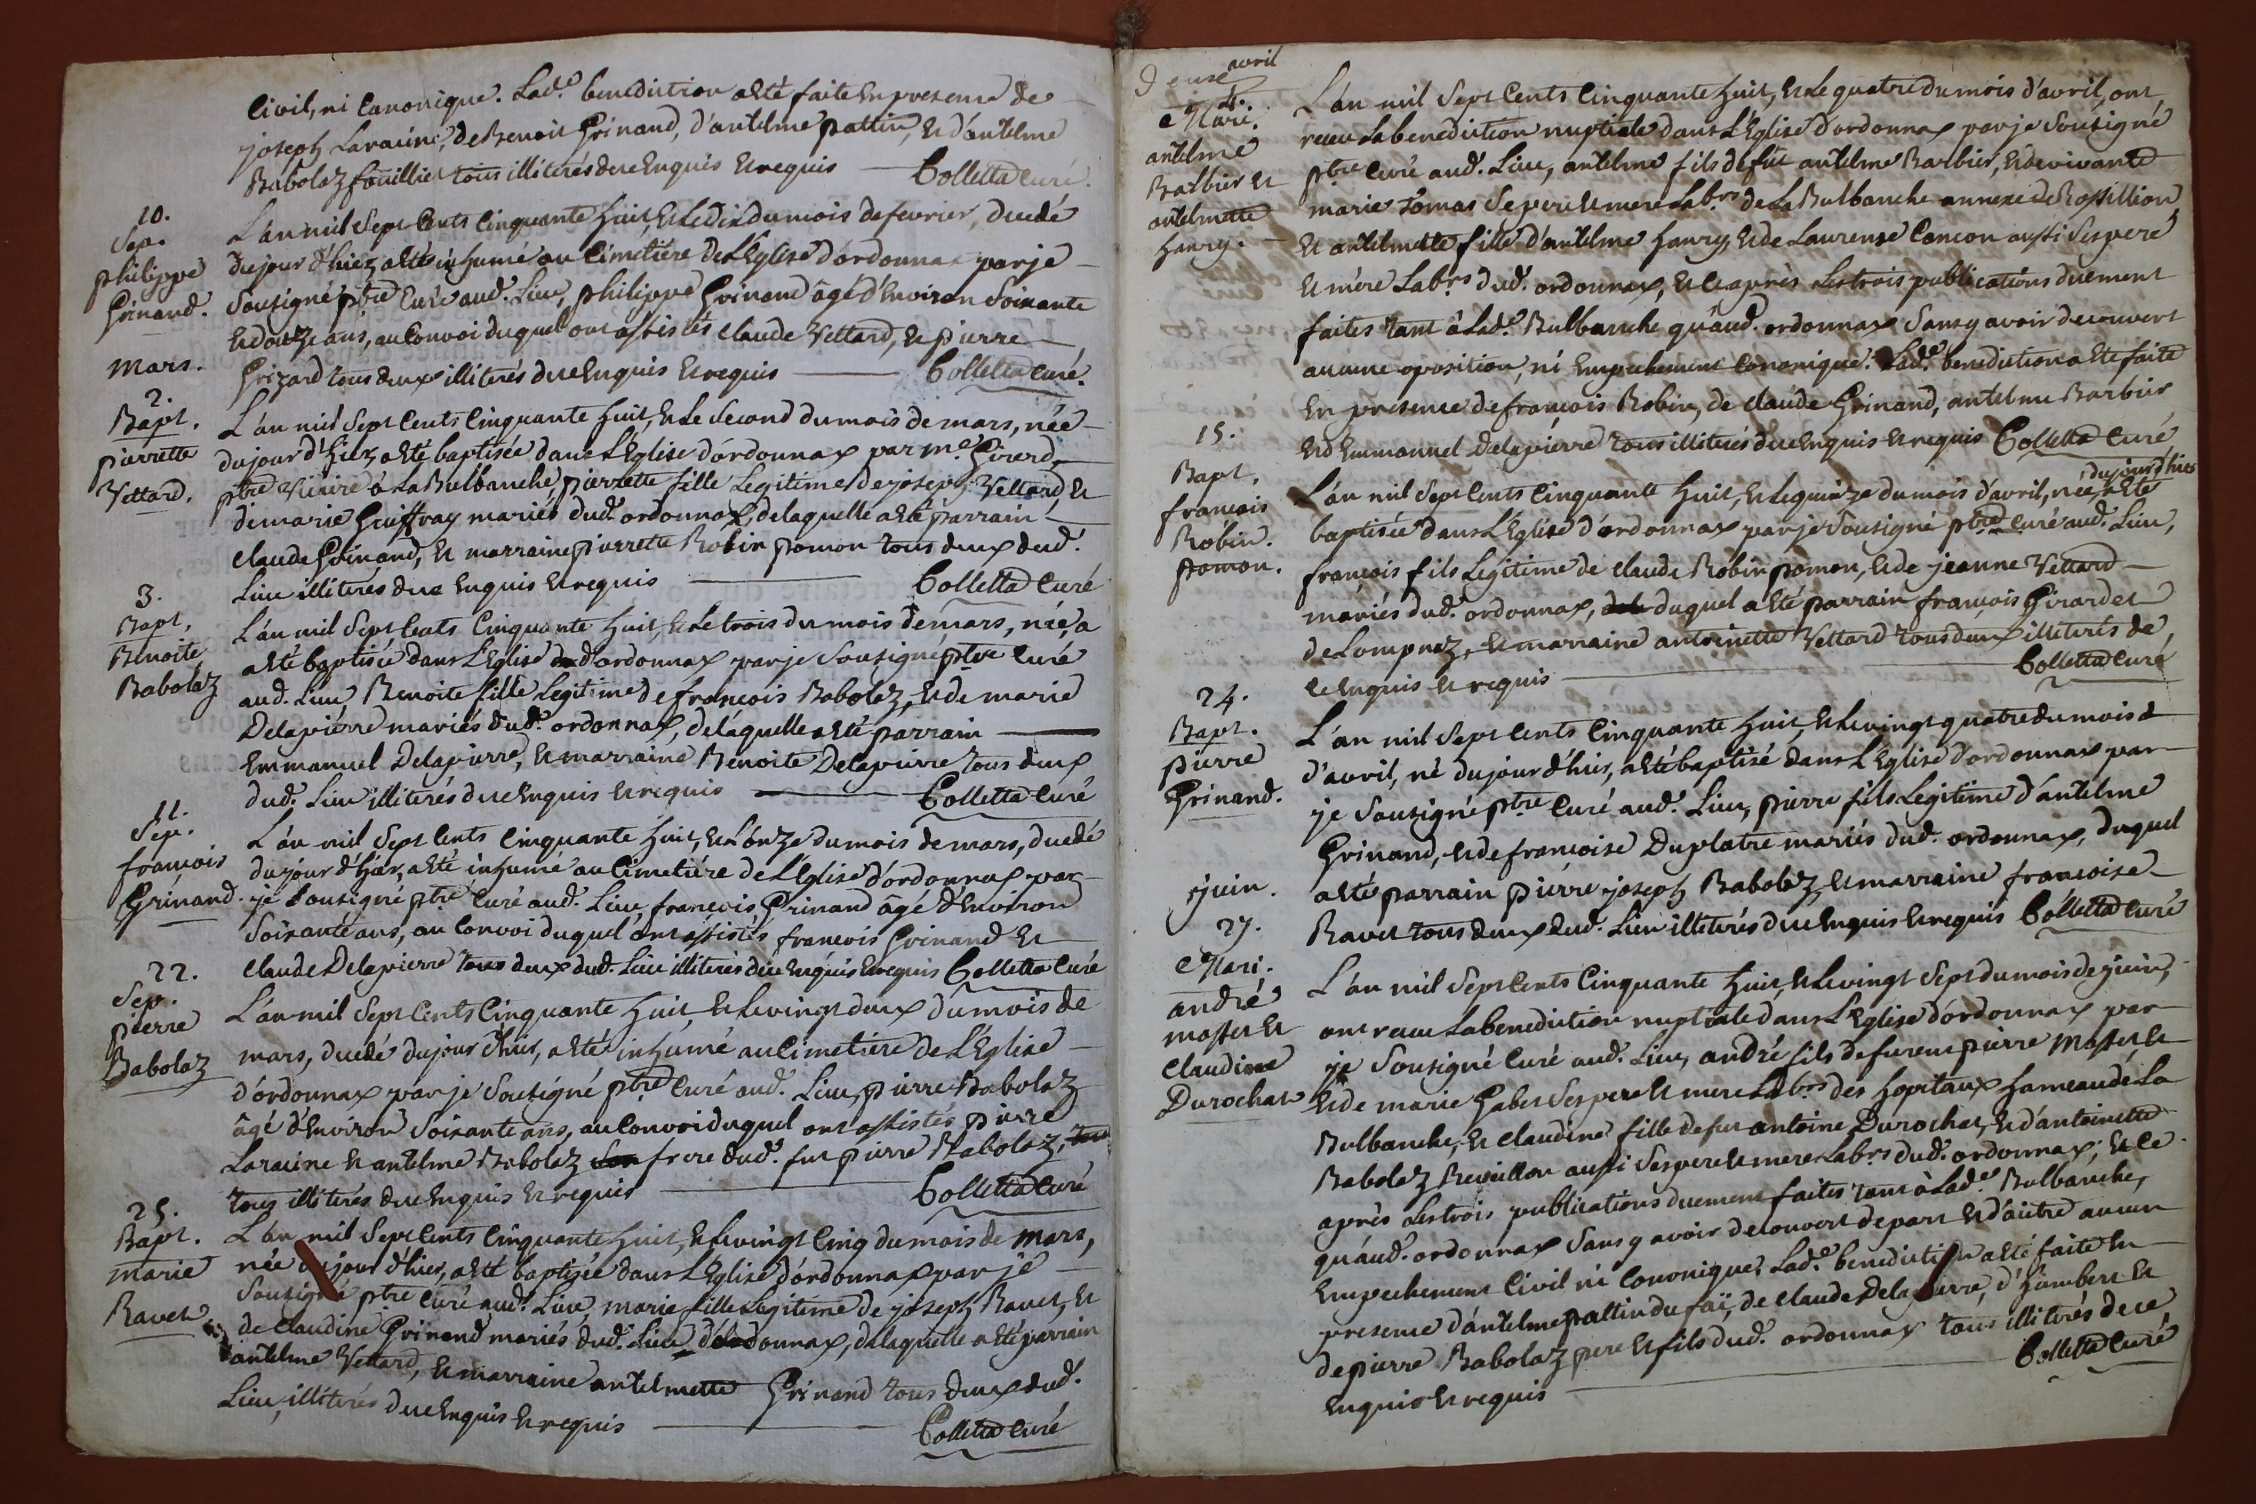 Civil, ni Canonique. Lad.e benediction a Eté faite En presence de
joseph Laracine, de Benoit Grinand, d'antelme pattin, Et d'antelme
Babolaz fouillier tous illiterés de ce Enquis Et requis Colletta Curé.
10.
Sep.
philippe
Grinand.
L'an mil Sept Cents Cinquante huit, Et Le dix du mois de fevrier, decedé
du jour d'hier, a eté inhumé au Cimetiére de L'Eglise d'ordonnax par je
Sousigné ptre Curé aud. Lieu, philippe Grinand âgé d'Environ Soixante
Et douze ans, au Convoi duquel ont assistés Claude Vettard, Et pierre
Grizard tous deux illiterés de ce Enquis Et requis Colletta Curé.
mars.
2.
Bapt.
pierrette
Vettard.
L'an mil Sept Cents Cinquante huit, Et Le Second du mois de mars, née
du jour d'hier, a eté baptisée dans L'Eglise d'ordonnax par m.e Girerd
ptre Vicaire à La Bulbanche, pierrette fille Legitime de joseph Vettard, Et
de marie Guiffray mariés dud. ordonnax, de laquelle a eté parrain
Claude Grinand, Et marraine pierrette Robin pomon tous deux dud.
Lieu illiterés de ce Enquis Et requis Colletta Curé
3.
Bapt.
Benoite
Babolaz
L'an mil Sept Cents Cinquante huit, Et Le trois du mois de mars, née, a
a Eté baptisée dans L'Eglise d'ordonnax par je Sousigné ptre Curé
aud. Lieu, Benoite fille Legitime de françois Babolaz, Et de marie
Delapierre mariés dud. ordonnax, de laquelle a eté parrain
Emmanuel Delapierre, Et marraine Benoite Delapierre tous deux
dud. Lieu illiterés de ce Enquis Et requis Colletta Curé
11.
Sep.
francois
Grinand.
L'an mil Sept Cents Cinquante huit, Et L'onze du mois de mars, decedé
du jour d'hier, a eté inhumé au Cimetiére de L'Eglise d'ordonnax par
je Sousigné ptre Curé aud. Lieu, françois Grinand âgé d'Environ
Soixante ans, au Convoi duquel ont assistés francois Grinand Et
Claude Delapierre tous deux dud. Lieu illiterés de ce Enquis Et requis Colletta Curé
22.
Sep.
pierre
Babolaz
L'an mil Sept Cents Cinquante huit, Et Le vingt deux du mois de
mars, decedé du jour d'hier, a eté inhumé au Cimetiére de L'Eglise
d'ordonnax par je Sousigné ptre Curé aud. Lieu, pierre Babolaz
âgé d'Environ Soixante ans, au Convoi duquel ont assistés pierre
Laracine Et antelme Babolaz frere dud. fut pierre Babolaz,
tous illiterés de ce Enquis Et requis Colletta Curé
25.
Bapt.
marie
Ravet
L'an mil Sept Cents Cinquante huit, Et Le vingt Cinq du mois de mars,
née du jour d'hier, a eté baptisée dans L'Eglise d'ordonnax par je
Sousigné ptre Curé aud. Lieu, marie fille Legitime de joseph Ravet, Et
de Claudine Grinand mariés dud. Lieu d'ordonnax, de laquelle a eté parrain
antelme Vettard, Et marraine antelmette Grinand tous deux dud.
Lieu, illiterés de ce Enquis Et requis
Colletta Curé
avril
4.
Mari.
antelme
Barbier Et
antelmette
hanry.
L'an mil Sept Cents Cinquante huit, Et Le quatre du mois d'avril, ont
receu La benediction nuptiale dans L'Eglise d'ordonnax par je Sousigné
ptre Curé aud. Lieu, antelme fils de fut antelme Barbier, Et de vivante
marie Tomas Se pere Et mere Lab.rs de La Bulbanche annexe de Rossillion
Et antelmette fille d'antelme hanry, Et de Laurense Cancon aussi Ses pere
Et mére Lab.rs dud. ordonnax, Et Ce aprés Les trois publications duement
faites tant à Lad.e Bulbanche qu'aud. ordonnax Sans y avoir decouvert
aucune oposition, ni Empechement Canonique. Lad.e benediction a Eté faite
En presence de françois Robin, de Claude Grinand, antelme Barbier
Et d'Emmanuel Delapierre tous illiterés de ce Enquis Et requis Colletta Curé
15.
Bapt.
françois
Robin.
pomon.
du jour d'hier
L'an mil Sept Cents Cinquante huit, Et Le quinze du mois d'avril, née, a Eté
baptisée dans L'Eglise d'ordonnax par je Sousigné ptre Curé aud. Lieu,
françois fils Legitime de Claude Robin pomon, Et de jeanne Vettard
mariés dud. ordonnax, duquel a eté parrain françois Girardet
de Lompnaz, Et marraine antoinette Vettard tous deux illiterés de
ce Enquis Et requis Colletta Curé
24.
Bapt.
pierre
Grinand.
L'an mil Sept Cents Cinquante huit, Et Le vingt quatre du mois d
d'avril, né du jour d'hier, a eté baptisé dans L'Eglise d'ordonnax par
je Sousigné ptre Curé aud. Lieu, pierre fils Legitime d'antelme
Grinand, Et de françoise Duplatre mariés dud. ordonnax, duquel
a eté parrain pierre joseph Babolaz, Et marraine françoise
Ravet tous deux dud. Lieu illiterés de ce Enquis Et requis Colletta Curé
juin.
27.
Mari.
andré
masset Et
Claudine
Durochat
L'an mil Sept Cents Cinquante huit, Et Le vingt Sept du mois de juin,
ont receu La benediction nuptiale dans L'Eglise d'ordonnax par
je Sousigné Curé aud. Lieu, andré fils de furent pierre Masset Et
Et de marie Gabet Ses pere Et mere Lab.rs des hopitaux hameau de La
Bulbanche, Et Claudine fille de fut antoine Durochat, Et d'antoinette
Babolaz Reveillon aussi Ses pere Et mere Lab.rs dud. ordonnax, Et Ce
aprés Les trois publications duement faites tant à Lad.e Bulbanche,
qu'aud. ordonnax Sans y avoir decouvert de part Et d'autre aucun
Empechement Civil ni Canonique. Lad.e benediction a eté faite En
presence d'antelme pattin du faï, de Claude Delapierre, d'humbert Et
de pierre Babolaz pere Et fils dud. ordonnax tous illiterés de ce
Enquis Et requis Colletta Curé